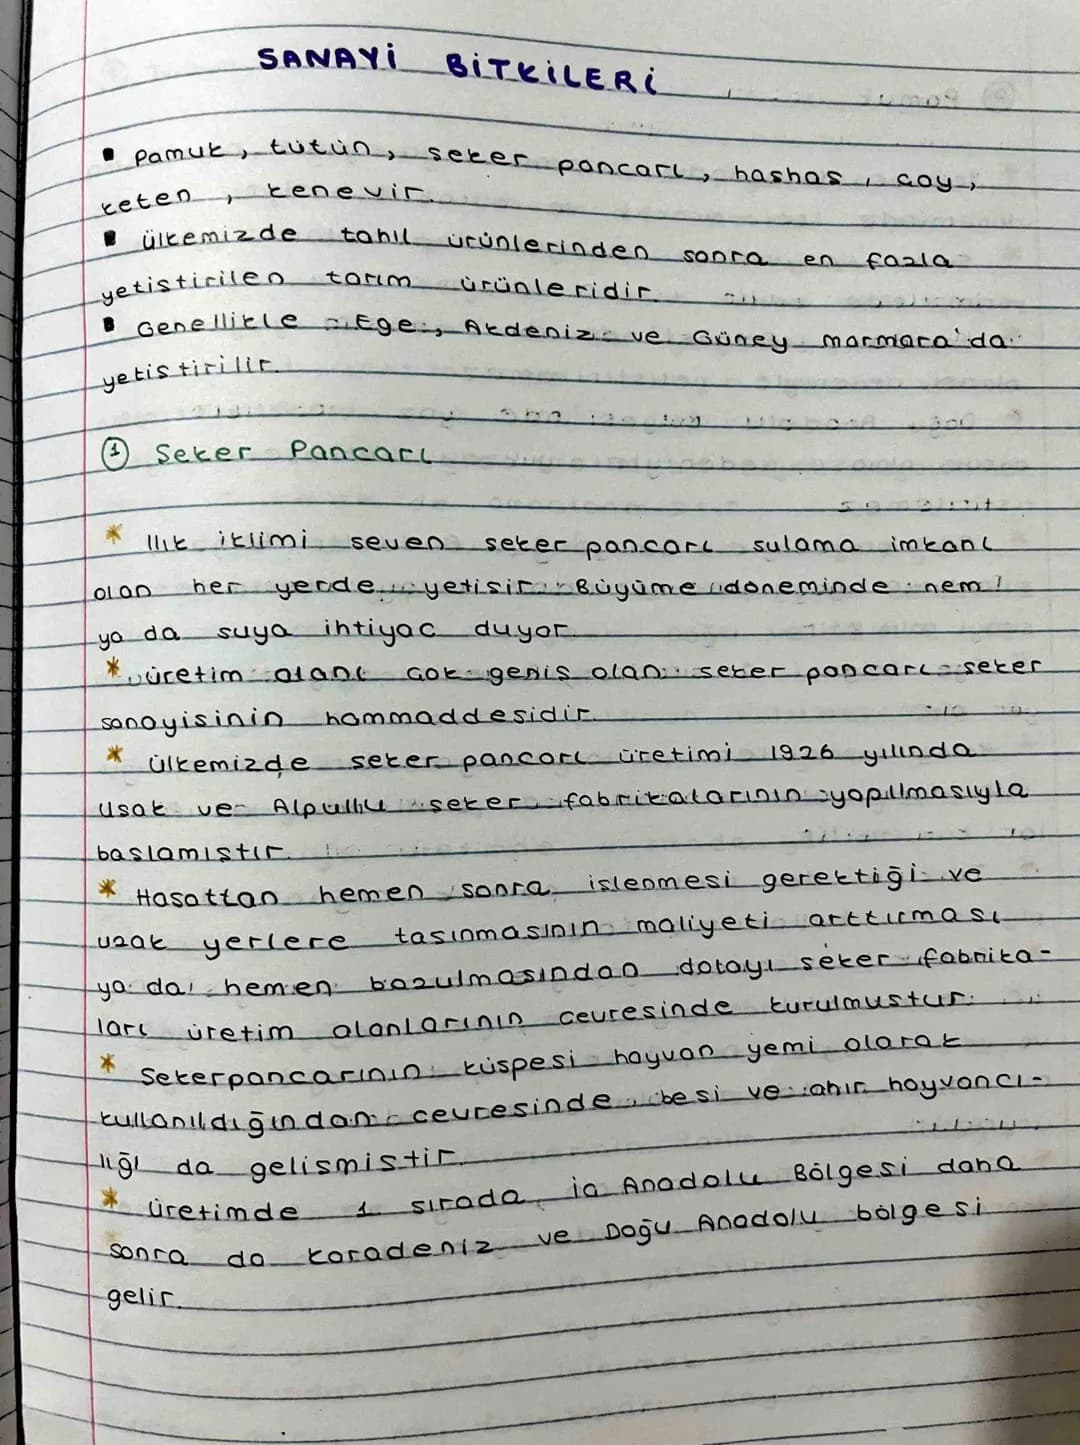 SANAYİ BİTKİLERİ
▪ Pamuk, tütün, seker pancarı, hashas, cay,
keten, kenevir.
▪ ülkemizde tahıl ürünlerinden sonra en fazla
yetistirilen tarım ürünleridir.
▪ Genellikle Ege, Akdeniz ve Güney marmara'da
yetistirilir.
① Seker Pancarı
* Ilık iklimi seven seker pancarı sulama imkanı
olan her yerde yetisir. Büyüme döneminde nem
ya da suya ihtiyac duyar.
* üretim alanı cok genis olan seker pancarı seker
sanayisinin hammaddesidir.
* ülkemizde seker pancarı üretimi 1926 yılında
Usak ve Alpullu seker fabrikalarının yapılmasıyla
baslamıstır.
* Hasattan hemen sonra islenmesi gerektiği ve
uzak yerlere tasınmasının maliyeti arttırması
ya da hemen bozulmasından dolayı seker fabrika-
ları üretim alanlarının cevresinde kurulmustur.
* Sekerpancarının küspesi hayvan yemi olarak
kullanıldığından cevresinde besi ve ahır hayvancı-
lığı da gelismistir.
* üretimde 1. sırada ic Anadolu Bölgesi daha
sonra da Karadeniz ve Doğu Anadolu bölgesi
gelir.